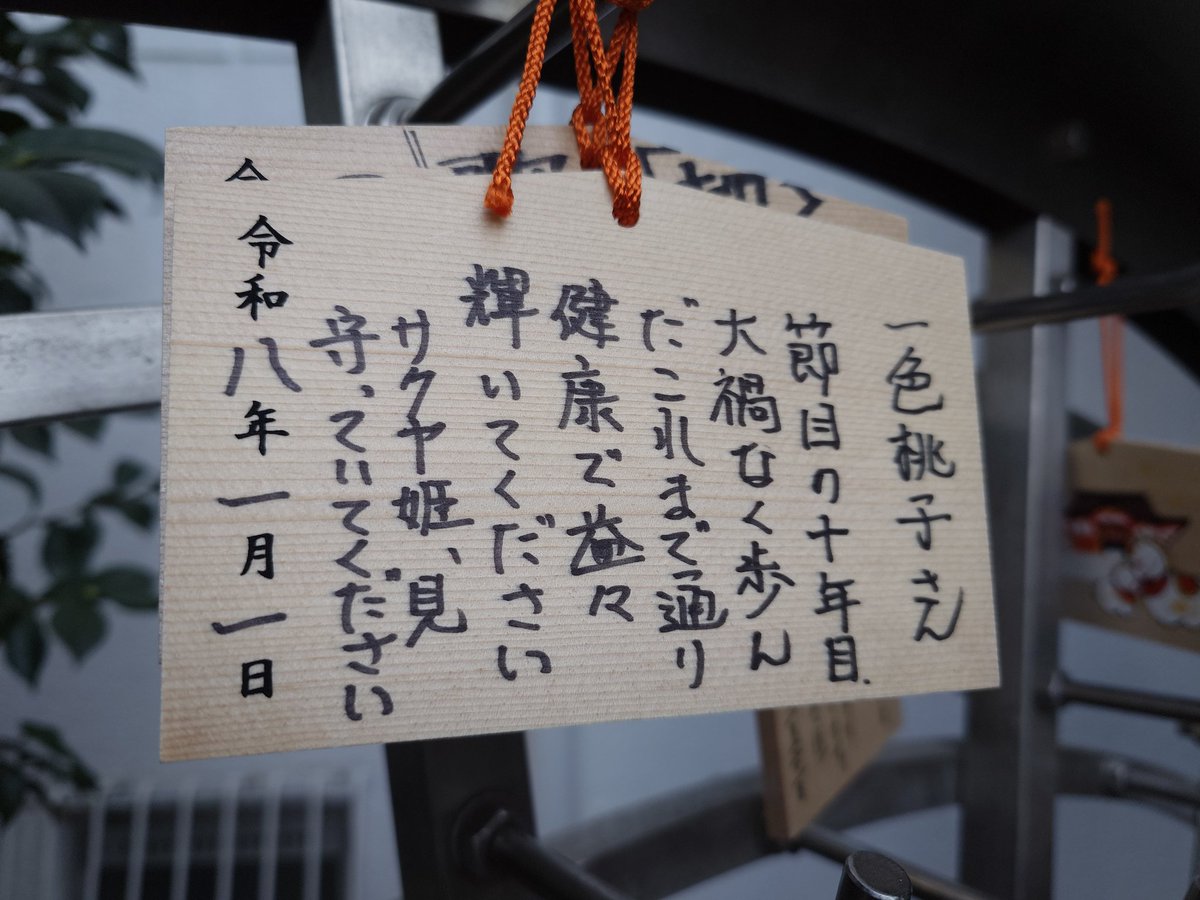 一色桃子さん
節目の十年目、
大禍なく歩ん
だこれまで通り
健康で益々
輝いてください
サクヤ姫、見
守っていてください
令和八年一月一日